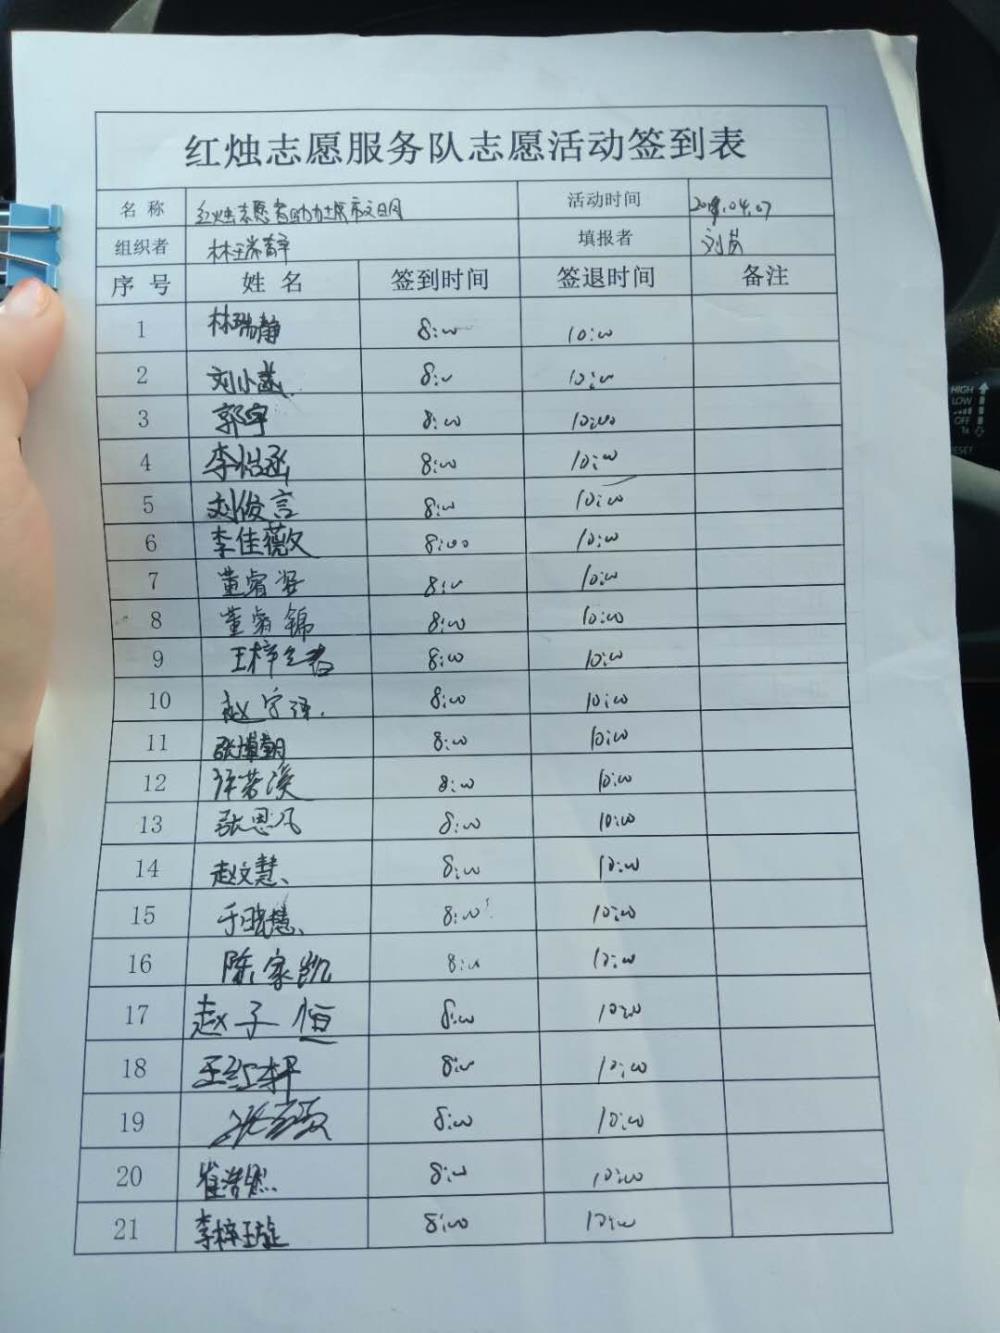 红烛志愿服务队志愿活动签到表
名 称 红烛志愿者助力城市文明 活动时间 2019.04.07
组织者 林瑞静 填报者 刘
序 号 姓 名 签到时间 签退时间 备注
1 林瑞静 8:00 10:00
2 刘小 8:00 10:00
3 郭宇 8:00 10:00
4 李怡函 8:00 10:00
5 刘俊言 8:00 10:00
6 李佳薇 8:00 10:00
7 董睿 8:00 10:00
8 董睿锦 8:00 10:00
9 王梓 8:00 10:00
10 赵宇 8:00 10:00
11 张博朝 8:00 10:00
12 许若溪 8:00 10:00
13 张恩凡 8:00 10:00
14 赵文慧 8:00 10:00
15 于晓慧 8:00 10:00
16 陈家凯 8:00 10:00
17 赵子恒 8:00 10:00
18 王红轩 8:00 10:00
19 张 8:00 10:00
20 崔浩然 8:00 10:00
21 李梓璇 8:00 10:00
HIGH
LOW
OFF